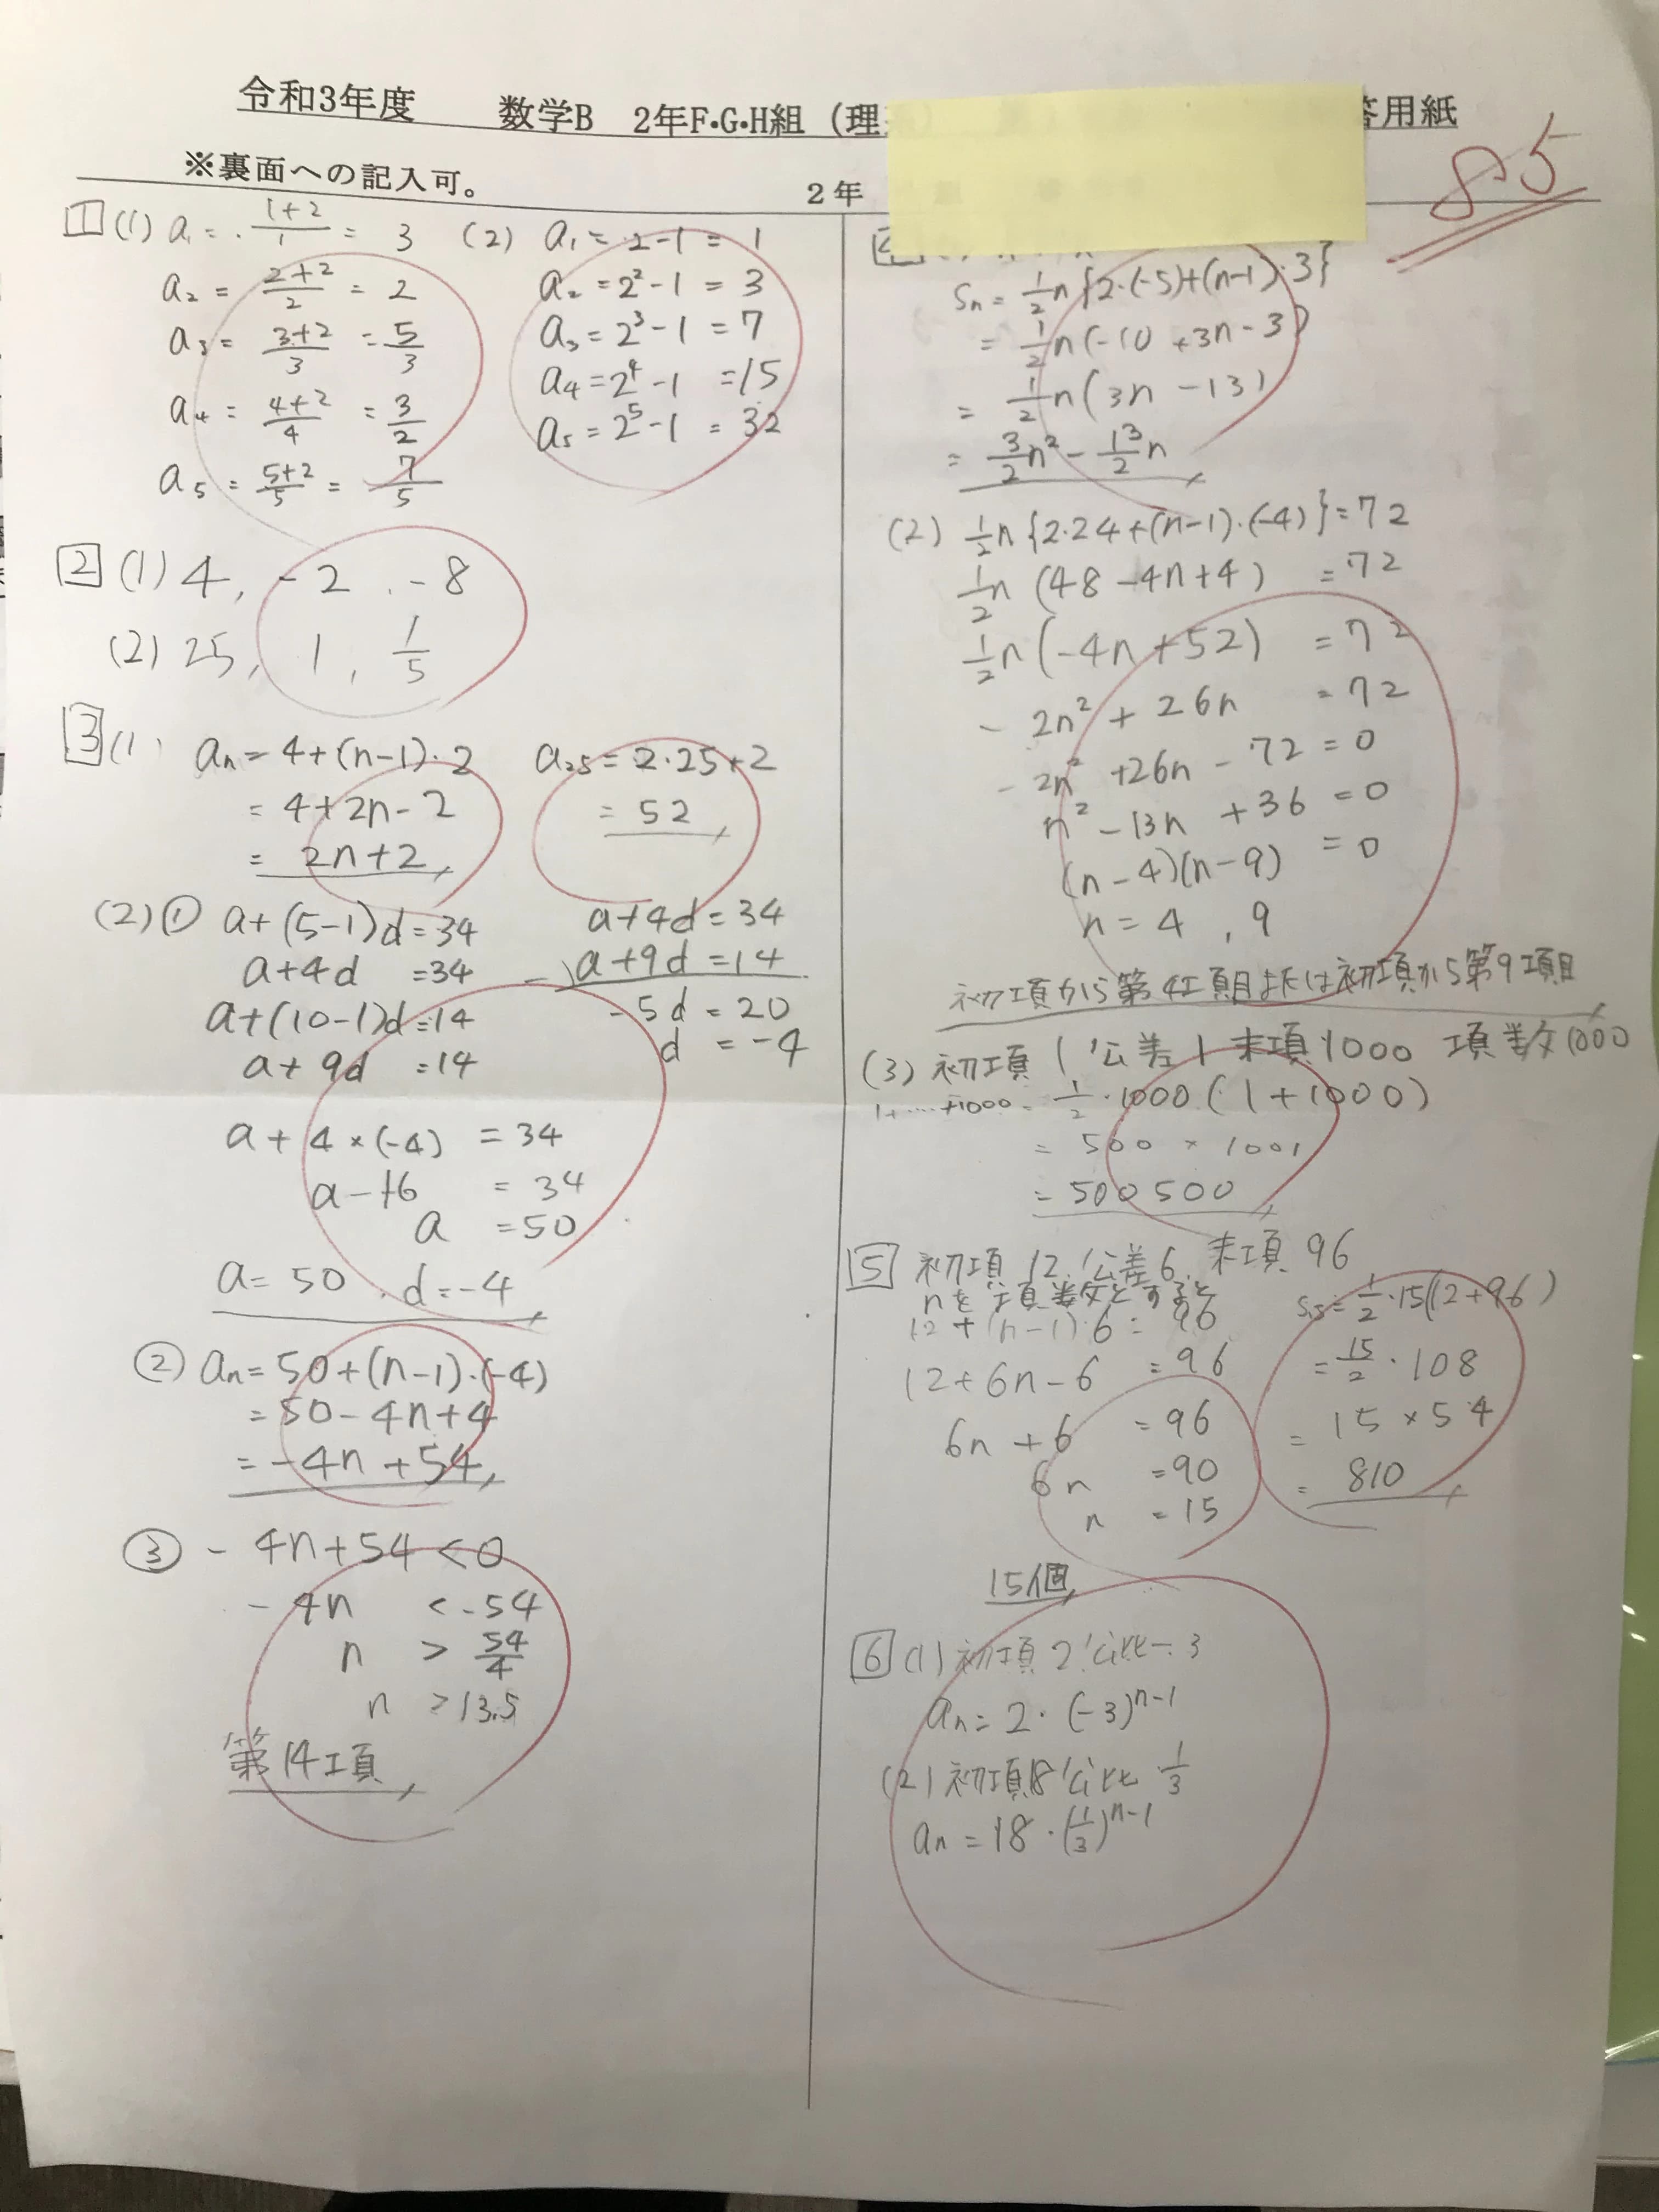 令和3年度 数学B 2年F・G・H組（理 答用紙
※裏面への記入可。
2年
85
1 (1) a₁ = 1+2/1 = 3
a₂ = 2+2/2 = 2
a₃ = 3+2/3 = 5/3
a₄ = 4+2/4 = 3/2
a₅ = 5+2/5 = 7/5
(2) a₁ = 2-1 = 1
a₂ = 2²-1 = 3
a₃ = 2³-1 = 7
a₄ = 2⁴-1 = 15
a₅ = 2⁵-1 = 32
2 (1) 4, -2, -8
(2) 25, 1, 1/5
3 (1)
aₙ = 4+(n-1)・2
= 4+2n-2
= 2n+2
a₂₅ = 2・25+2
= 52
(2) ① a+(5-1)d = 34
a+4d = 34
a+(10-1)d = 14
a+9d = 14
a+4d = 34
-) a+9d = 14
-5d = 20
d = -4
a+4×(-4) = 34
a-16 = 34
a = 50
a = 50, d = -4
② aₙ = 50+(n-1)・(-4)
= 50-4n+4
= -4n+54
③ -4n+54 < 0
-4n < -54
n > 54/4
n > 13.5
第14項
Sₙ = 1/2n{2・(-5)+(n-1)・3}
= 1/2n(-10+3n-3)
= 1/2n(3n-13)
= 3/2n² - 13/2n
(2) 1/2n{2・24+(n-1)・(-4)} = 72
1/2n(48-4n+4) = 72
1/2n(-4n+52) = 72
-2n²+26n = 72
-2n²+26n-72 = 0
n²-13n+36 = 0
(n-4)(n-9) = 0
n = 4, 9
初項から第4項目または初項から第9項目
(3) 初項1 公差1 末項1000 項数1000
1+……+1000 = 1/2・1000(1+1000)
= 500×1001
= 500500
5 初項12, 公差6, 末項96
nを項数とすると
12+(n-1)・6 = 96
12+6n-6 = 96
6n+6 = 96
6n = 90
n = 15
15個
S₁₅ = 1/2・15(12+96)
= 15/2・108
= 15×54
= 810
6 (1) 初項2 公比-3
aₙ = 2・(-3)ⁿ⁻¹
(2) 初項18 公比1/3
aₙ = 18・(1/3)ⁿ⁻¹